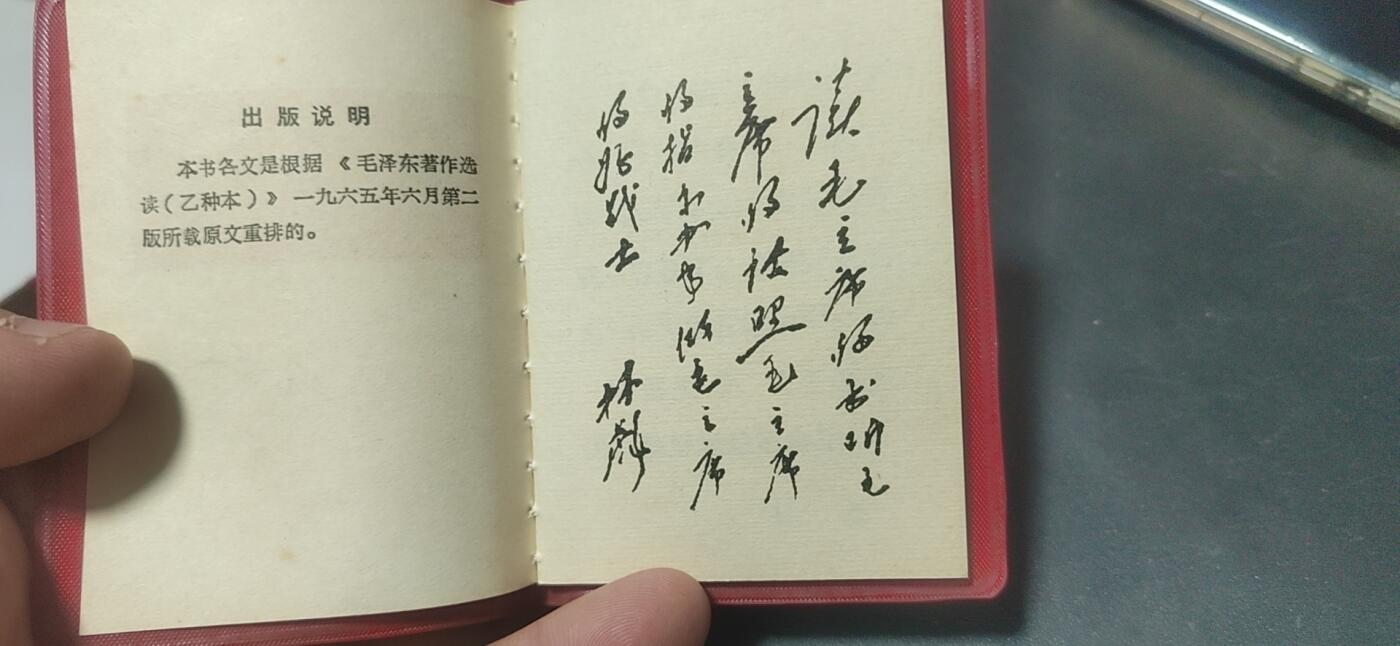 出版说明
本书各文是根据《毛泽东著作选
读(乙种本)》一九六五年六月第二
版所载原文重排的。
读毛主席的书听毛
主席的话照毛主席
的指示办事做毛主席
的好战士
林彪